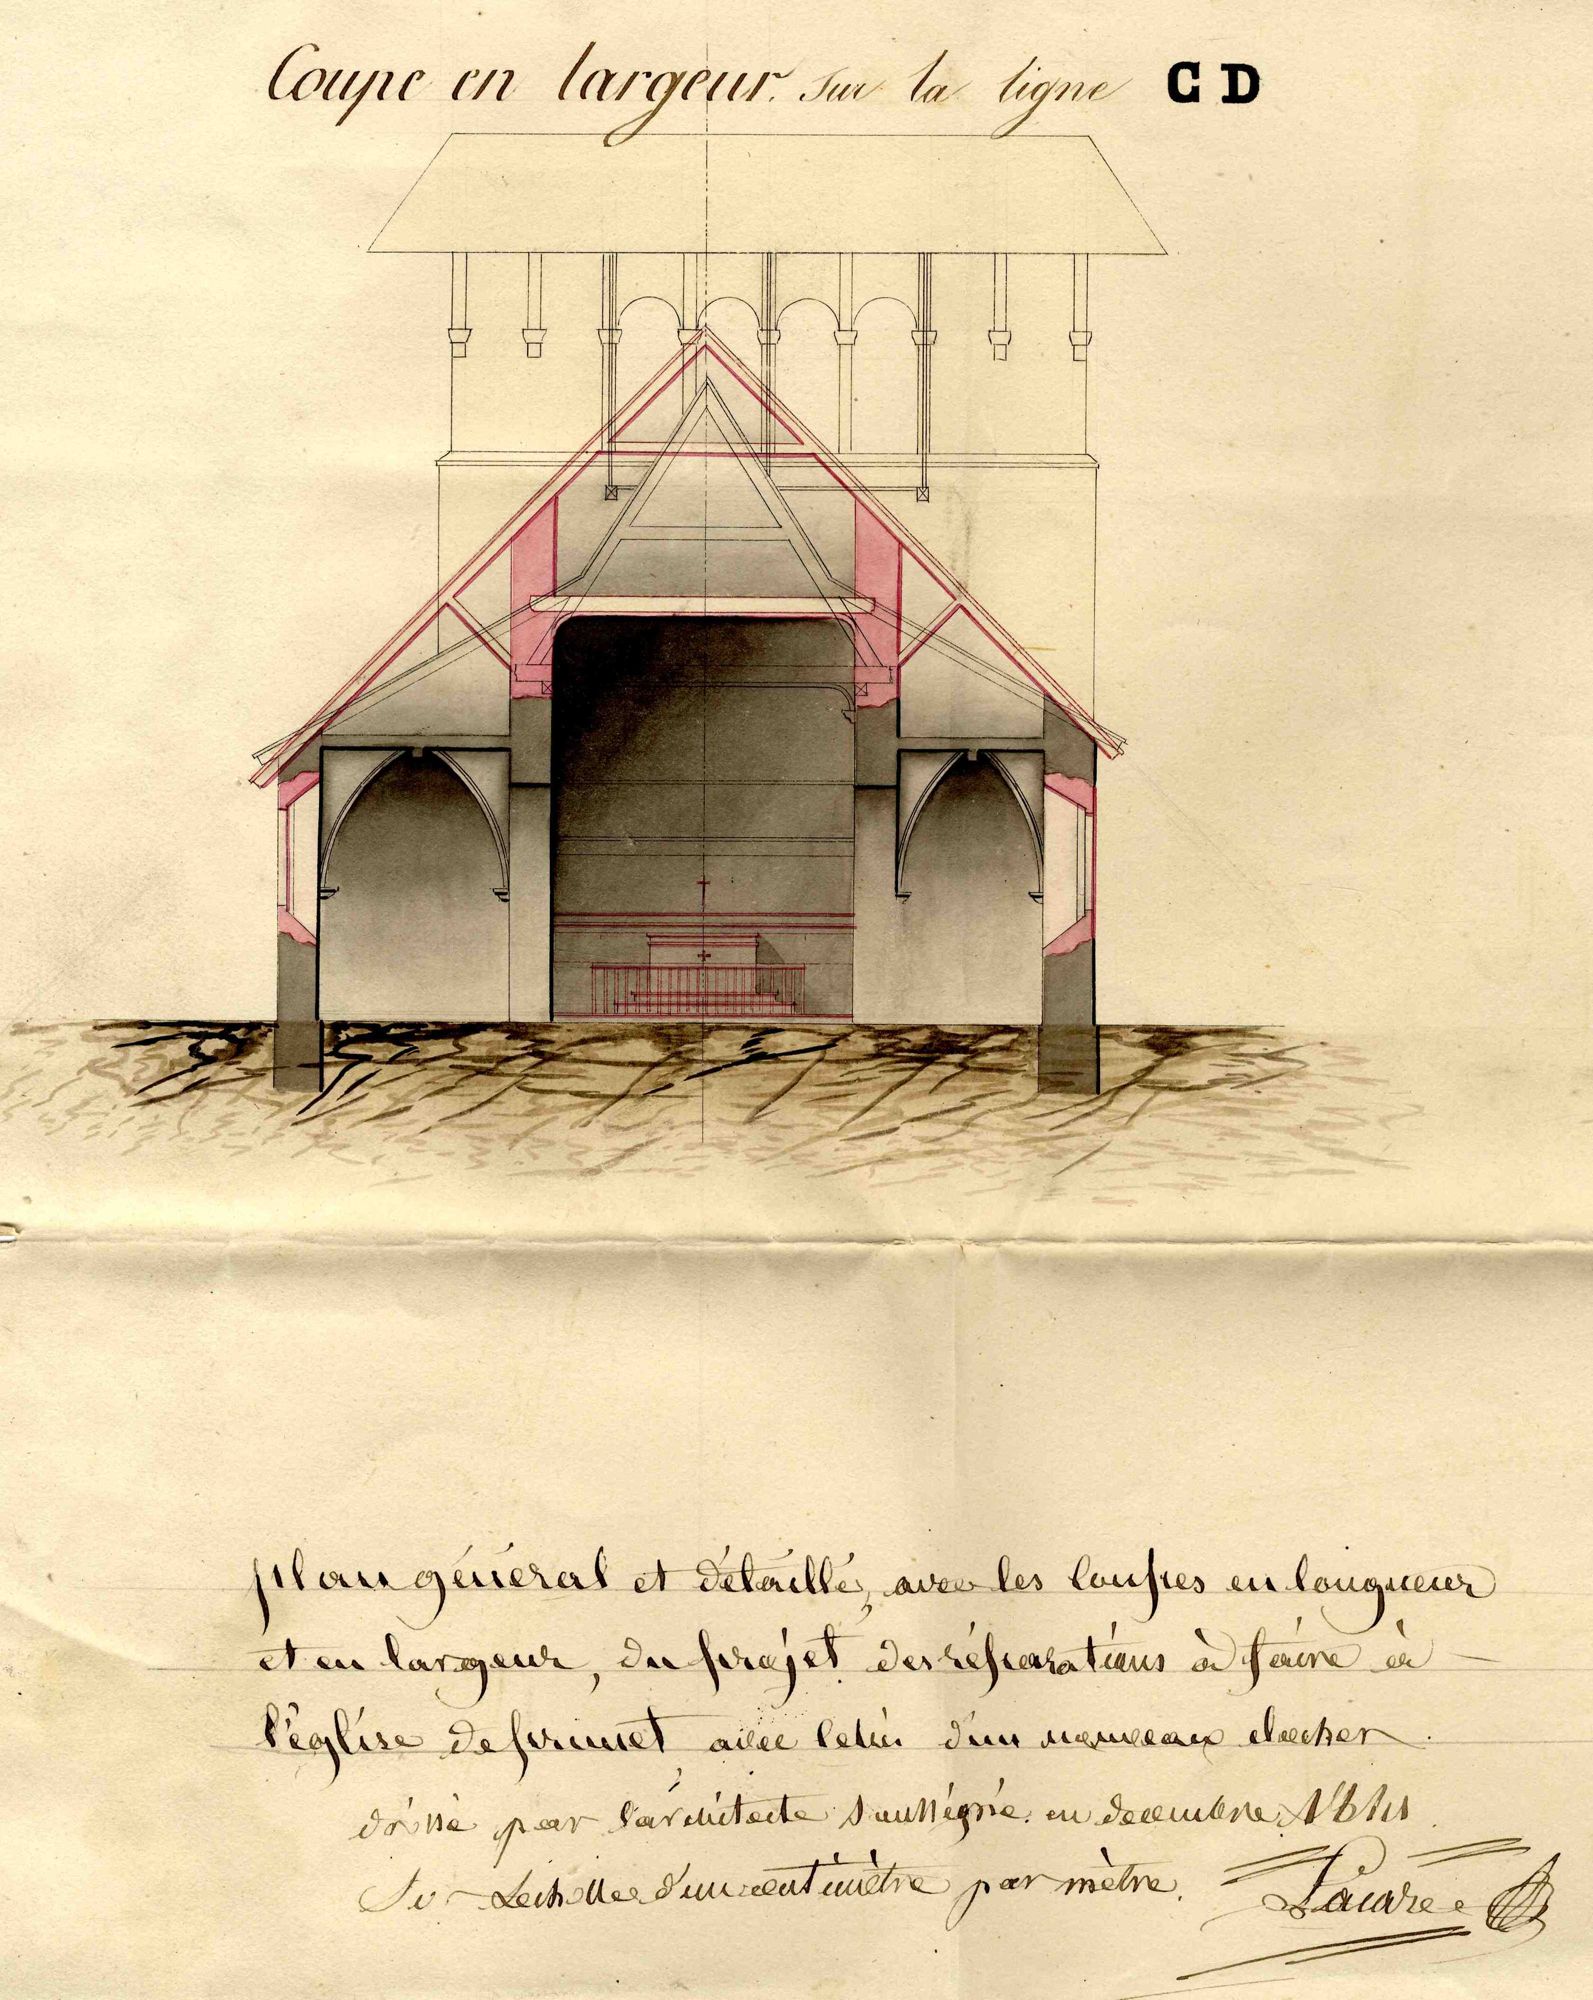 Coupe en largeur. sur la ligne C D
plan général et détaillé, avec les coupes en longueur
et en largeur, du projet des réparations à faire à
l'église de prunet, avec celui d'un nouveaux clocher.
dréssé par l'architecte soussigné. en decembre
Sur Lechelle d'un centimètre par mètre.